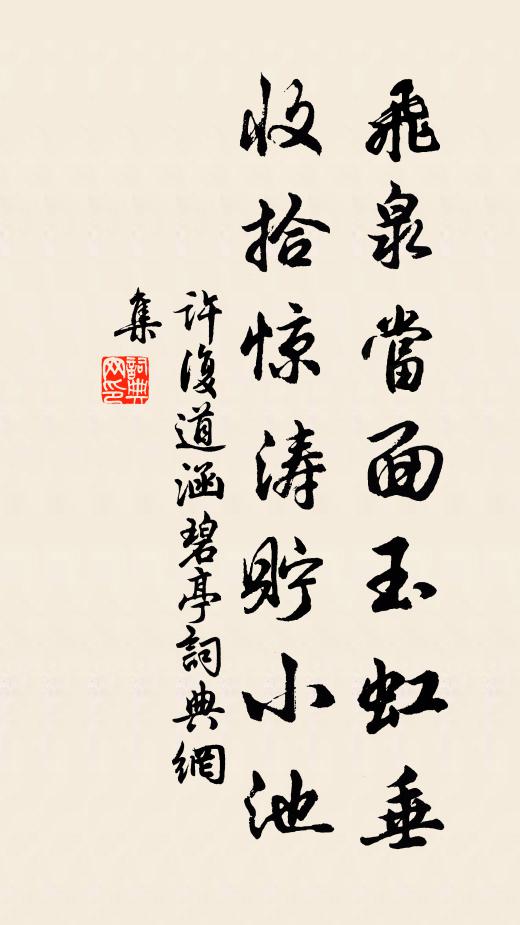 飛泉當面玉虹垂
收拾惊涛貯小池
許復道涵碧亭詞典網
集
詞典网印